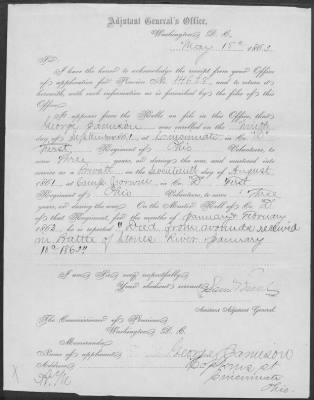 Adjutant General's Office,
Washington, D. C.
May 15th, 1863
Sir:
I have the honor to acknowledge the receipt from your Office
of application for Pension No. 14658, and to return it
herewith, with such information as is furnished by the files of this
Office.
It appears from the Rolls on file in this Office, that
George Jameson was enrolled on the
day of at Cincinnati in Co.
First, Regiment of Ohio Volunteers, to
serve Three years, or during the war, and mustered into
service as a Private on the Seventeenth day of August
1861, at Camp Corwin in Co. D. First
Regiment of Ohio Volunteers, to serve Three
years, or during the war. On the Muster Roll of Co. D.
of that Regiment, for the months of January & February
1863, he is reported "Died from wounds received
in Battle of Stones River January
1863"
I am, Sir, very respectfully,
Your obedient servant,
Assistant Adjutant General.
The Commissioner of Pensions,
Washington, D. C.
Memoranda:
Name of applicant, George Jameson
Address,
Cincinnati
Ohio.